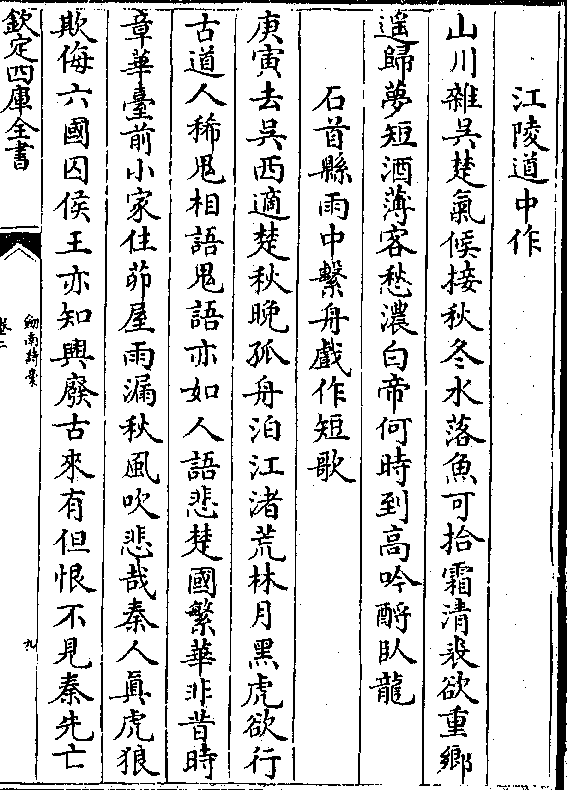 江陵道中作
山川雜吳楚氣候接秋冬水落魚可拾霜清裘欲重鄉
遥歸夢短酒薄客愁濃白帝何時到高吟酹臥龍
石首縣雨中繫舟戲作短歌
庚寅去吳西適楚秋晚孤舟泊江渚荒林月黑虎欲行
古道人稀鬼相語鬼語亦如人語悲楚國繁華非昔時
章華臺前小家住茆屋雨漏秋風吹悲哉秦人真虎狼
欺侮六國囚侯王亦知興廢古來有但恨不見秦先亡
欽定四庫全書
劒南詩稾
卷二
九